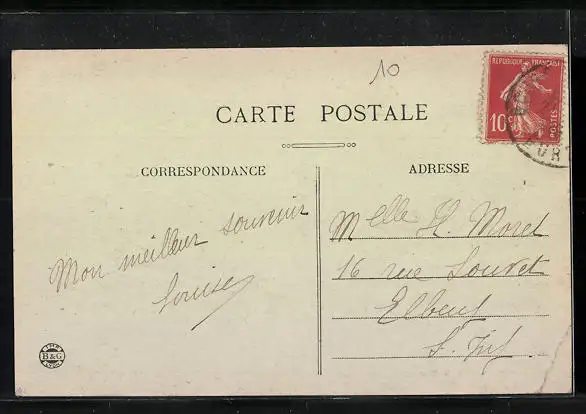 10
RÉPUBLIQUE FRANÇAISE
10c
POSTES
CARTE POSTALE
CORRESPONDANCE
ADRESSE
Mon meilleur souvenir
Louise
Melle H. Moret
16 rue Louvet
Elbeuf
S. Inf
IMP.
B&G
LYON